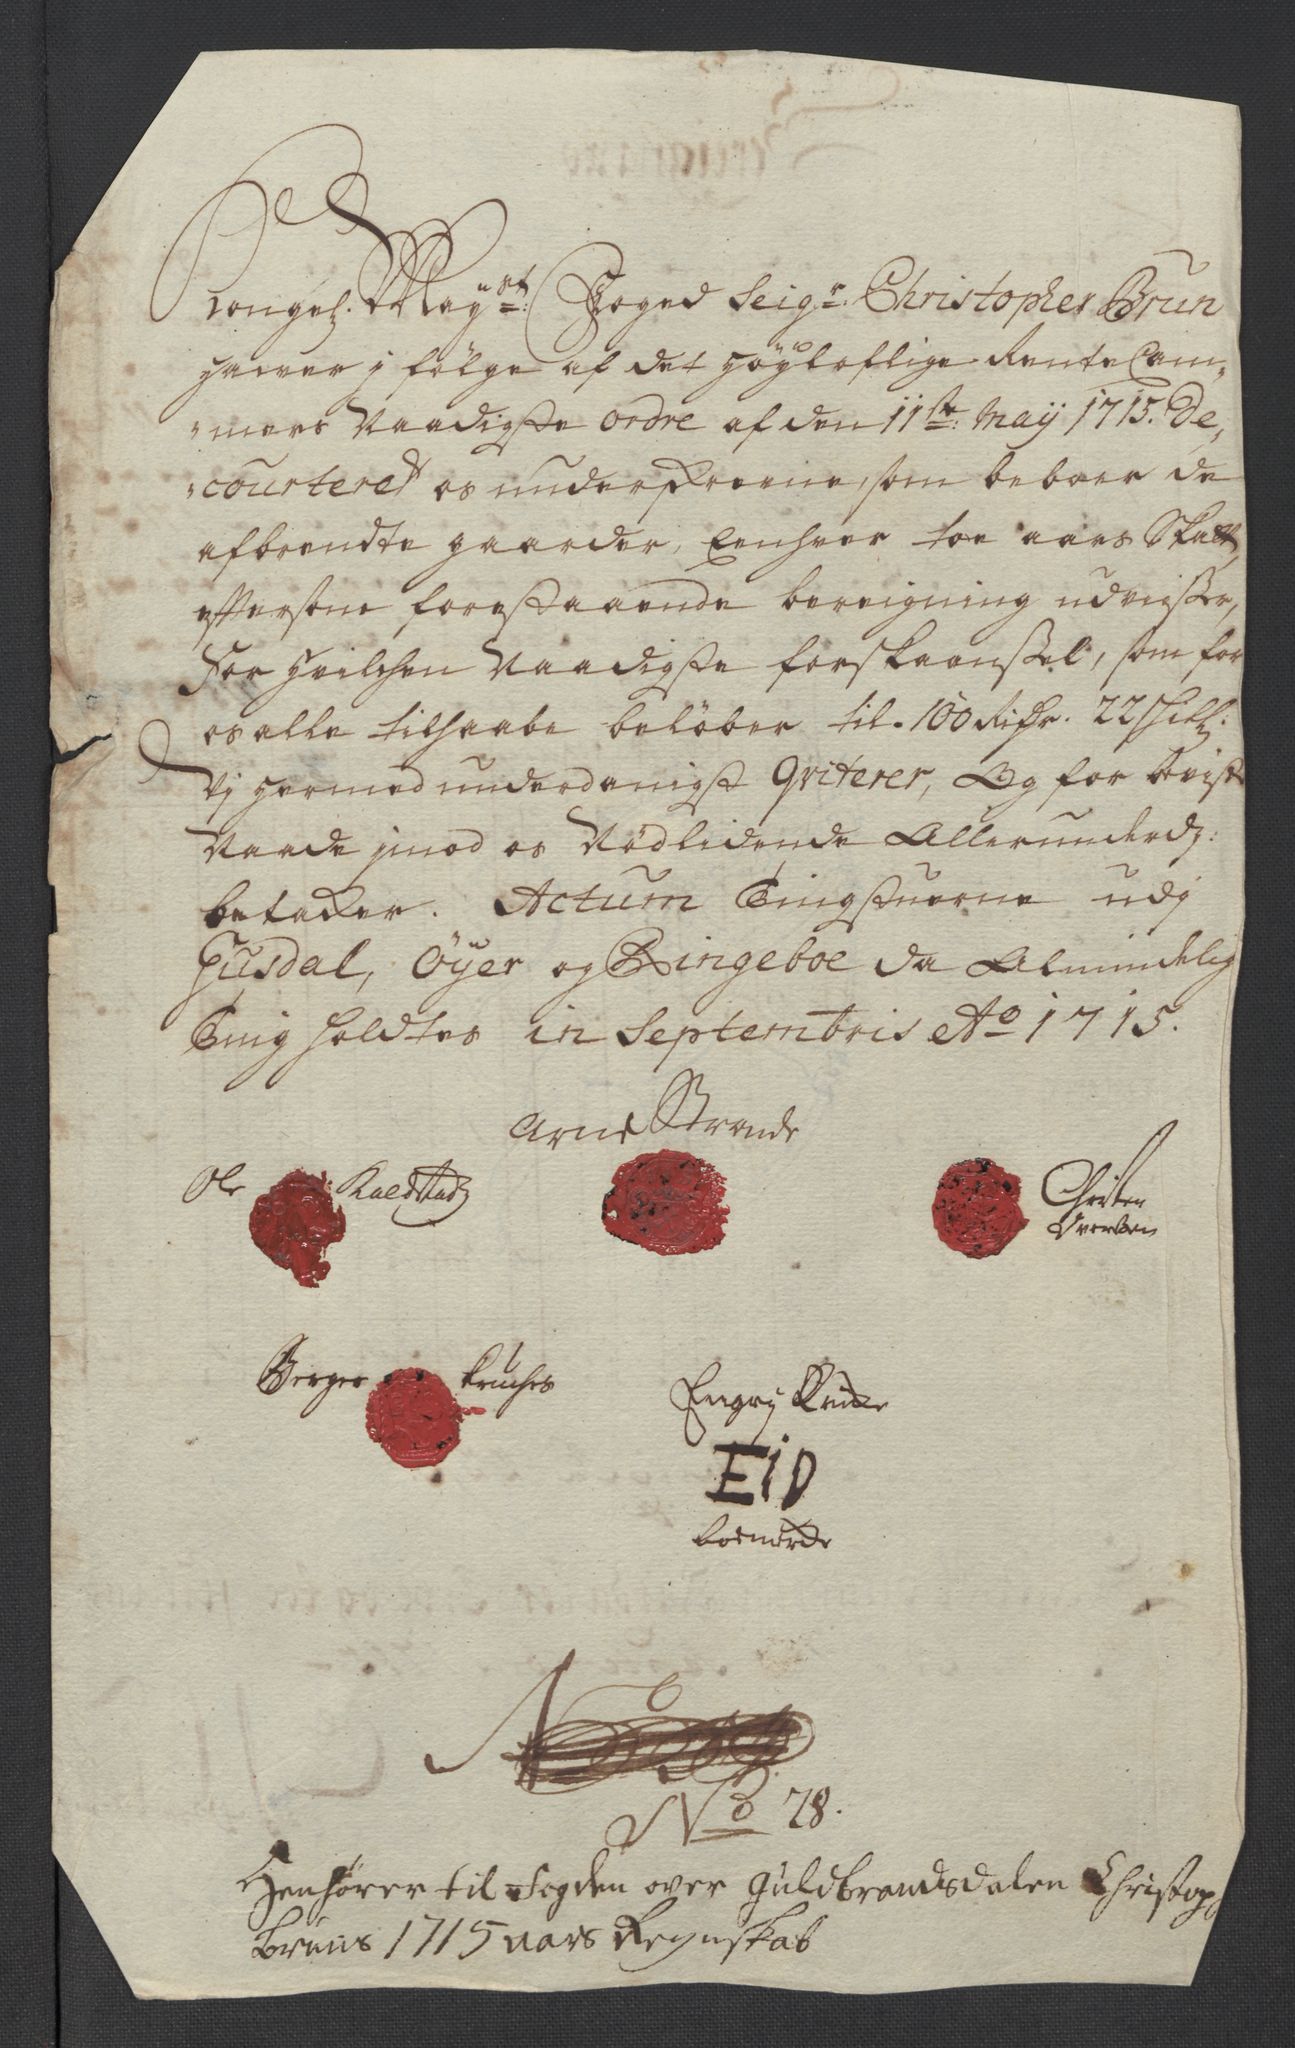 Kongel. Mayst: Foged Seigr. Christopher Brun
hafver j følge af det høyloflige Rente Cam-
-mers Naadigste ordre af den 11te: Maij 1715. De-
-courteret os underskrevne, som beboer de
afbrendte gaarder, Eenhver toe aars Skatt,
effter som forestaaende bereigning udvisser,
For hvilchen Naadigste forskaanssel, som for
os alle tilsaabe beløber til. 100 Rixdr. 22 skill:
Vj hermed underdanigst Qviterer, Og for bevist
Naade jmod os Nødlidende Allerunderdg:
betacker. Actum Tingstuerne udj
Fusdal, Öyer og Ringeboe da Almindelig
Ting holdtes in Septembris Ao 1715.
Arne Strande
Ole Kaldstad
Christen Iversen
Berger Kruches
Engrj Kritte
EID
boemercke
No 78.
Henhører til Fogden over Guldbrandsdalen Christop
Bruns 1715 aars Regnskab